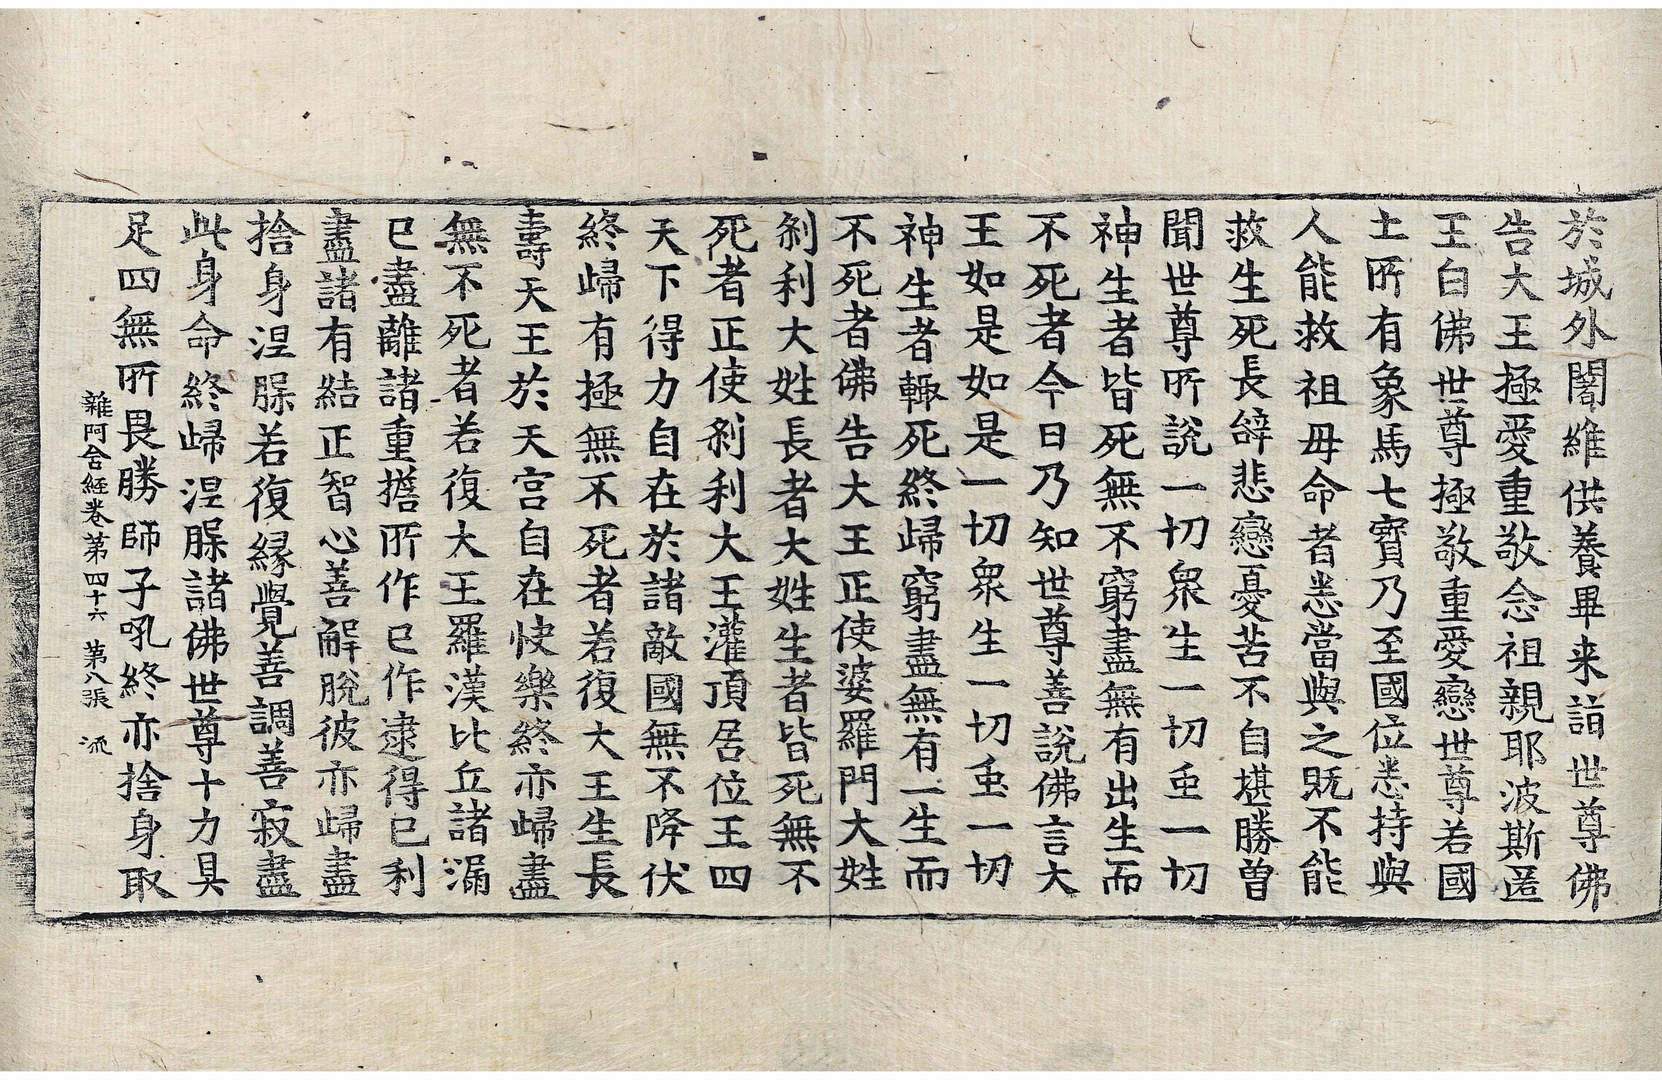 於城外闍維供養畢来詣世尊佛
告大王極愛重敬念祖親耶波斯匿
王白佛世尊極敬重愛戀世尊若國
土所有象馬七寶乃至國位悉持與
人能救祖母命者悉當與之既不能
救生死長辝悲戀憂苦不自堪勝曽
聞世尊所說一切衆生一切虫一切
神生者皆死無不窮盡無有出生而
不死者今日乃知世尊善說佛言大
王如是如是一切衆生一切虫一切
神生者輙死終歸窮盡無有一生而
不死者佛告大王正使婆羅門大姓
剎利大姓長者大姓生者皆死無不
死者正使剎利大王灌頂居位王四
天下得力自在於諸敵國無不降伏
終歸有極無不死者若復大王生長
壽天王於天宮自在快樂終亦歸盡
無不死者若復大王羅漢比丘諸漏
已盡離諸重擔所作已作逮得已利
盡諸有結正智心善解脫彼亦歸盡
捨身涅槃若復緣覺善調善寂盡
此身命終歸涅槃諸佛世尊十力具
足四無所畏勝師子吼終亦捨身取
雜阿含經卷第四十六　第八張　流